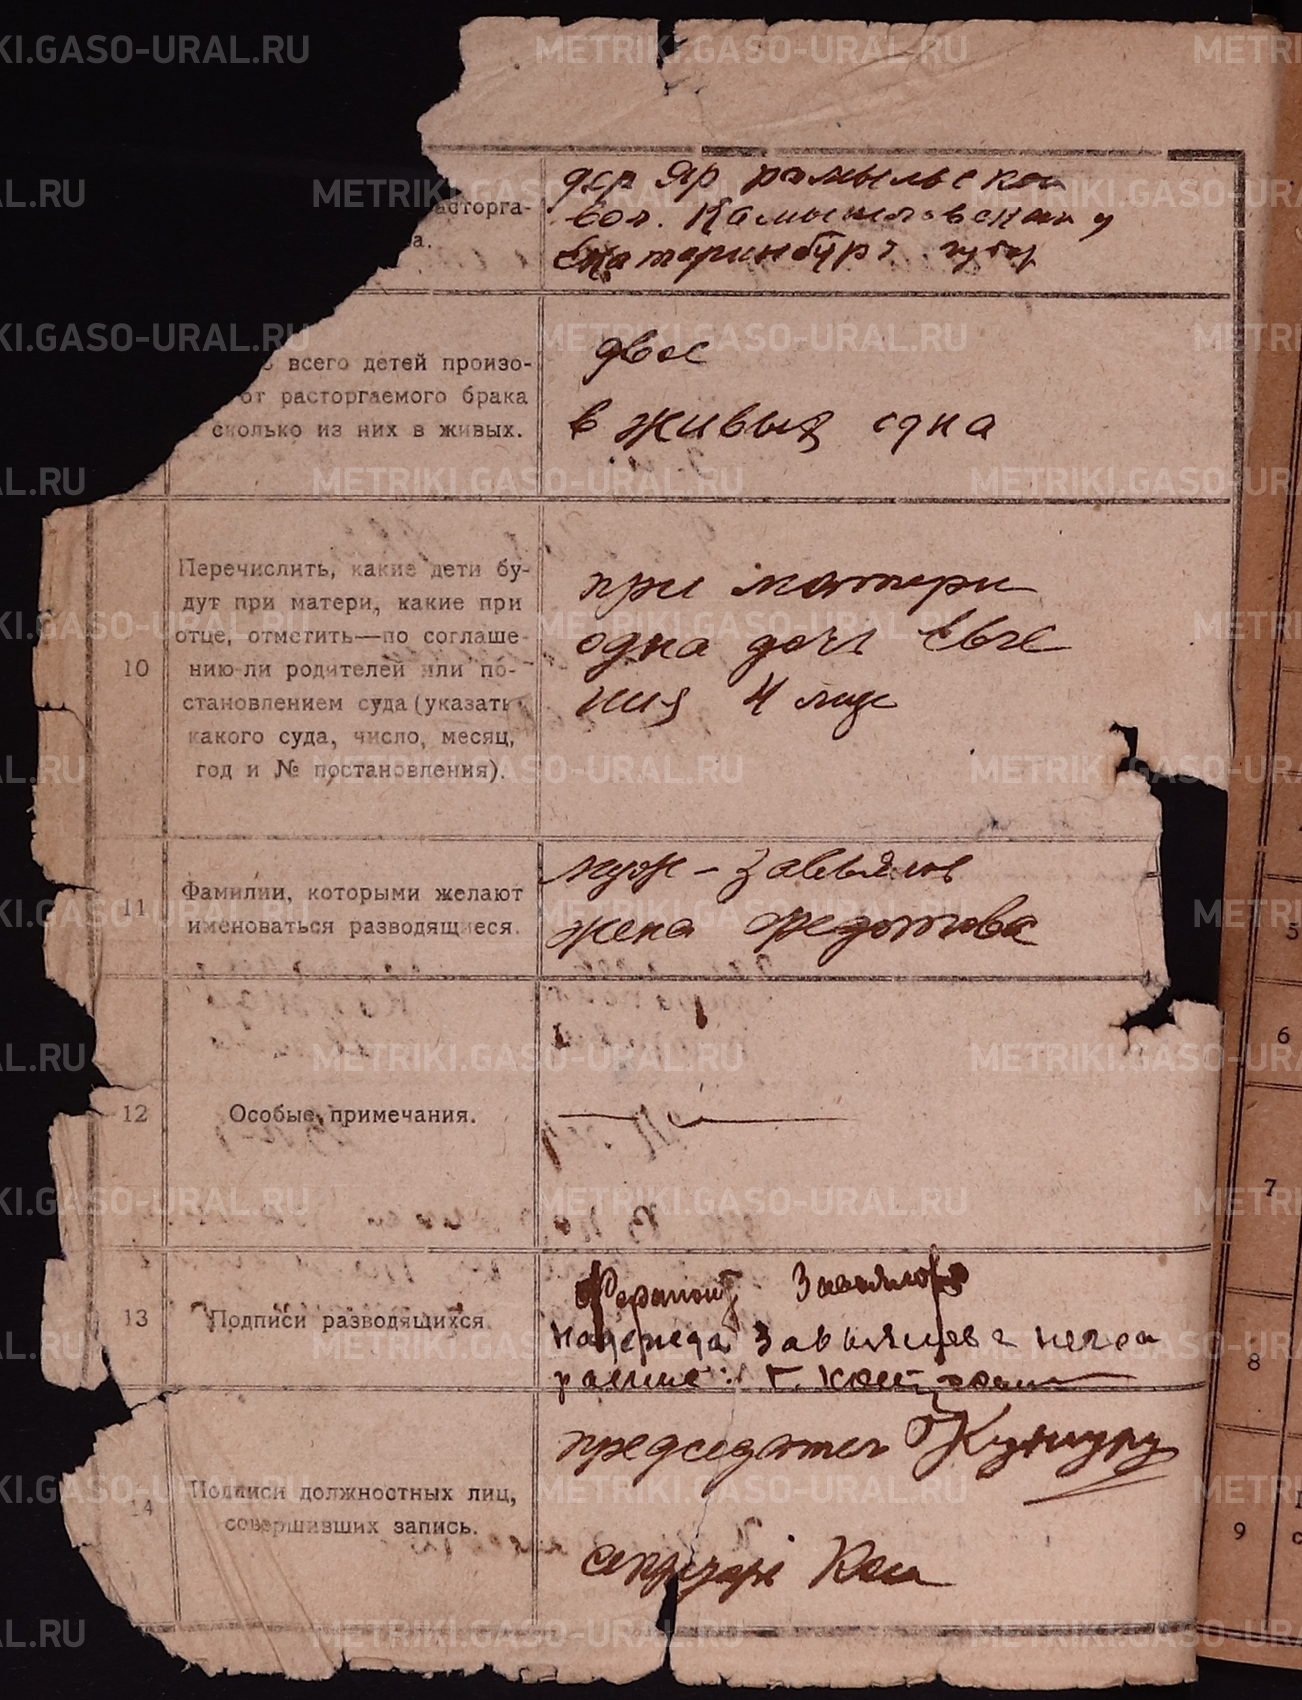 асторга-
а.
дер Яр рамыльской
вол. Камышловском у
Екатеринбург губер
всего детей произо-
от расторгаемого брака
сколько из них в живых.
двое
в живых одна
10
Перечислить, какие дети бу-
дут при матери, какие при
отце, отметить—по соглаше-
нию-ли родителей или по-
становлением суда (указать
какого суда, число, месяц,
год и № постановления).
при матери
одна дочь Евге
ния 4 лет
11
Фамилии, которыми желают
именоваться разводящиеся.
муж - Завьялов
жена Федотова
12
Особые примечания.
13
Подписи разводящихся
Ферапонт Завьялов
Надежда Завьялова негра
14
Подписи должностных лиц,
совершивших запись.
председател
5
6
7
8
9
METRIKI.GASO-URAL.RU